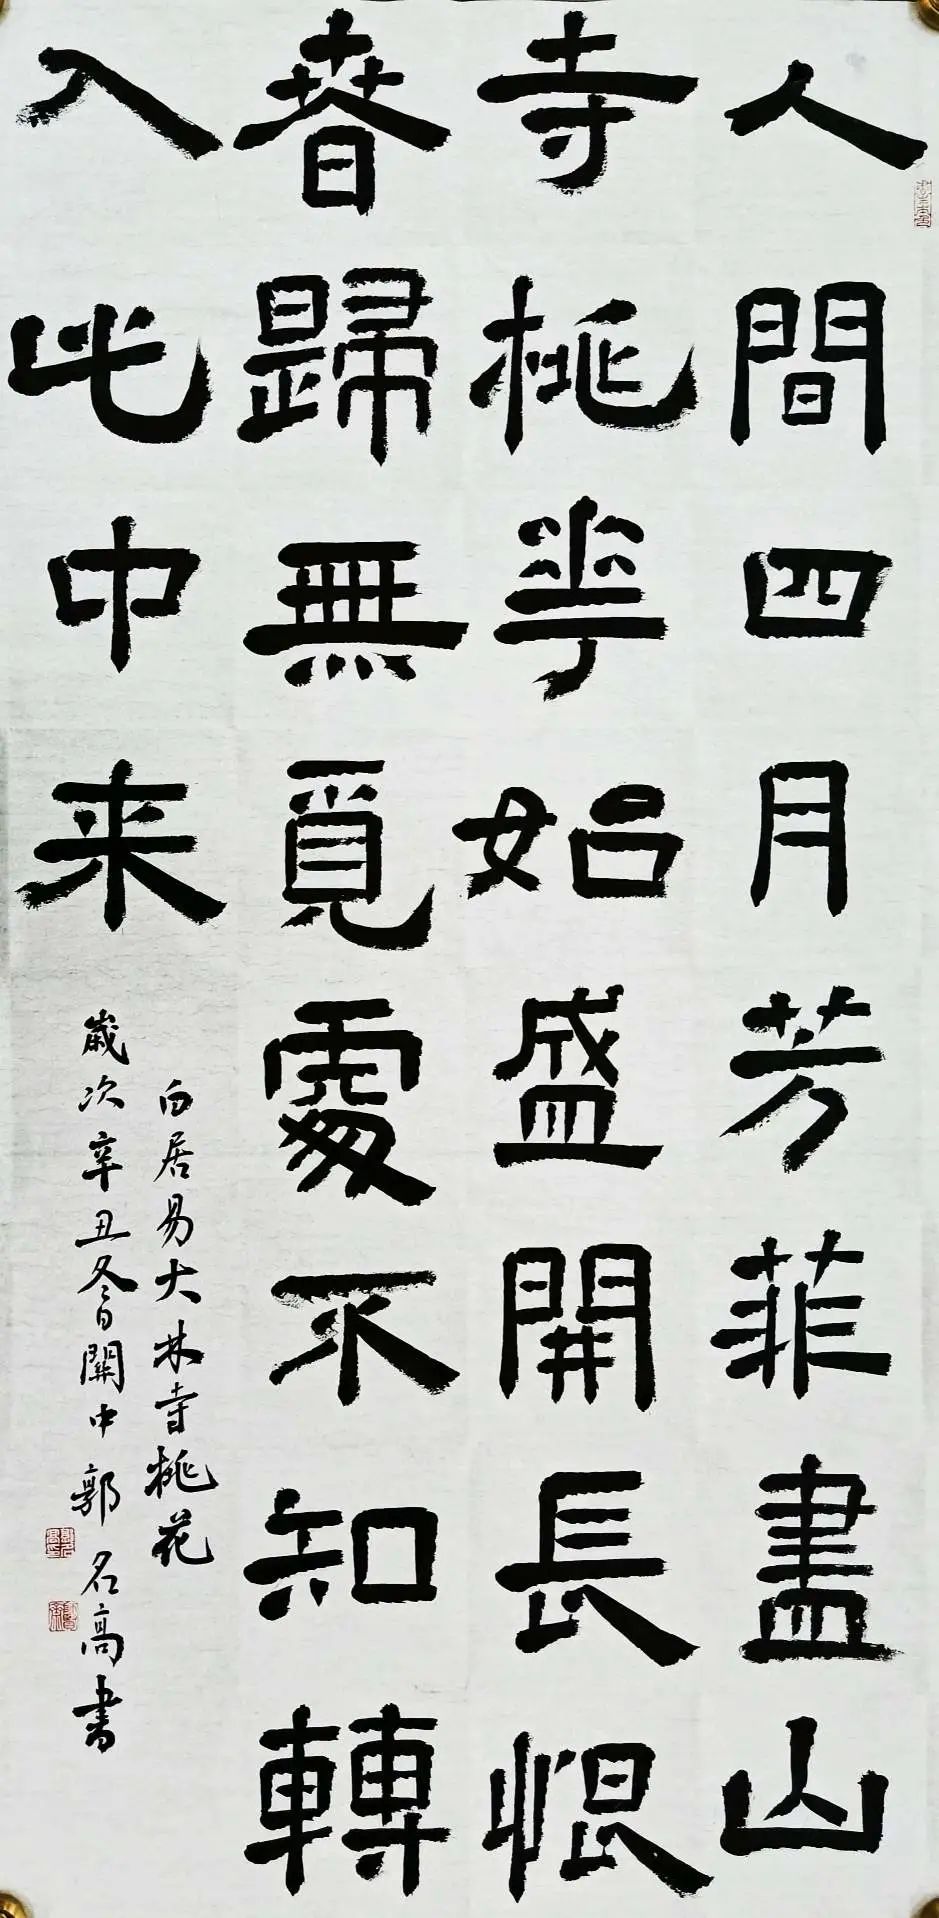 人間四月芳菲盡山
寺桃華始盛開長恨
春歸無覓處不知轉
入此中来
白居易大林寺桃花
歲次辛丑冬日關中郭名高書